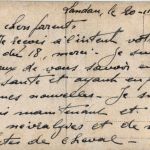 Landau, le 20-
chers parent.
Je reçois à l'instant vot
du 18, merci. Je su
de vous savoir en
santé et ayant eu
nouvelles. Je s
maintenant et
et de
de cheval -